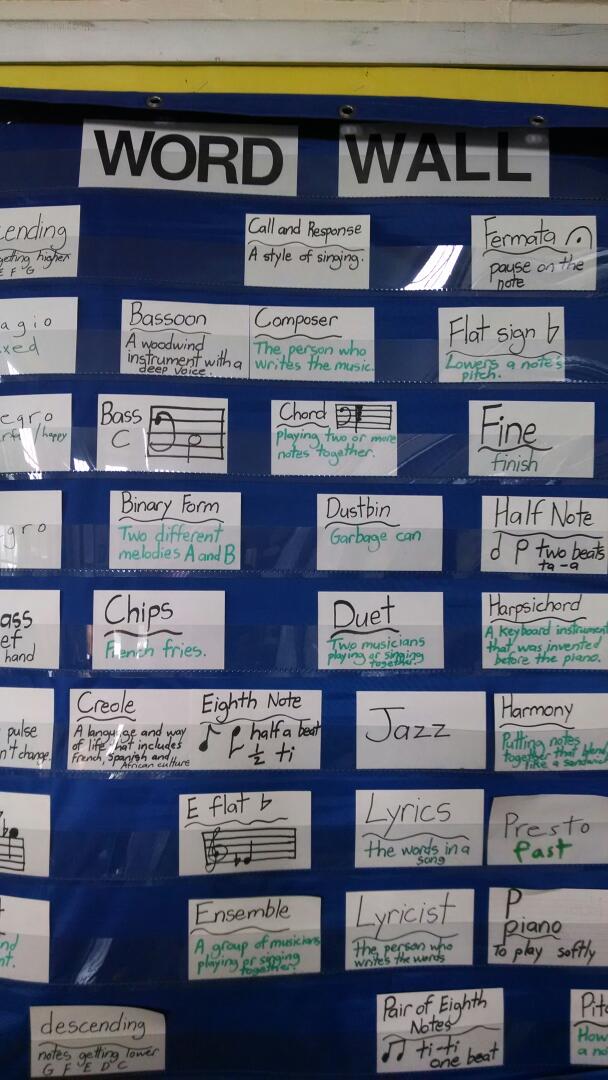 WORD WALL
cending
getting higher
E F G
Call and Response
A style of singing.
Fermata
pause on the
note
agio
xed
Bassoon
A woodwind
instrument with a
deep voice.
Composer
The person who
writes the music.
Flat sign b
Lowers a note's
pitch.
egro
/happy
Bass
C
Chord
playing two or more
notes together.
Fine
finish
gro
Binary Form
Two different
melodies A and B
Dustbin
Garbage can
Half Note
two beats
ta-a
ass
ef
hand
Chips
French fries.
Duet
Two musicians
playing or singing
together.
Harpsichord
A keyboard instrument
that was invented
before the piano.
pulse
n't change.
Creole
A language and way
of life that includes
French, Spanish and
African culture
Eighth Note
half a beat
1/2 ti
Jazz
Harmony
Putting notes
together that blend
like a sandwich
E flat b
Lyrics
the words in a
song
Presto
fast
nd
nt.
Ensemble
A group of musicians
playing or singing
together.
Lyricist
the person who
writes the words
P
piano
to play softly
descending
notes getting lower
G F E D C
Pair of Eighth
Notes
ti-ti
one beat
Pit
How
a no